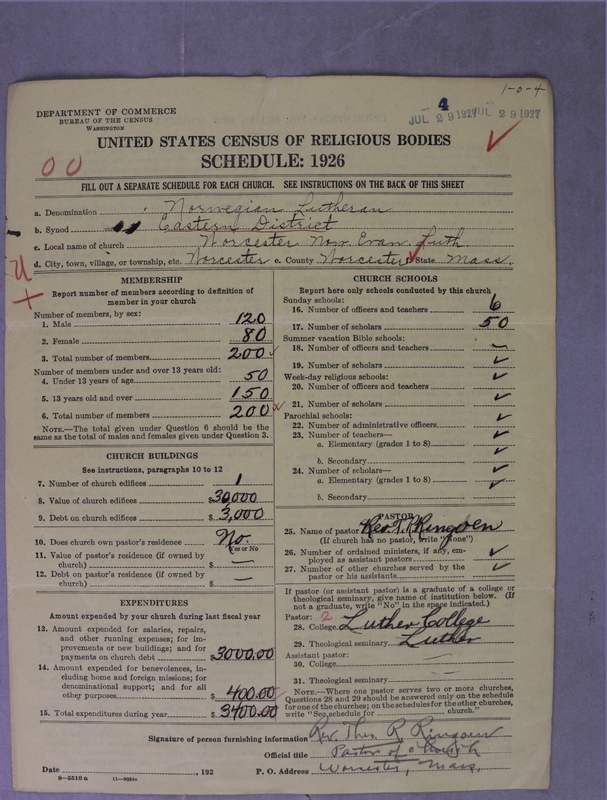 1-0-4
DEPARTMENT OF COMMERCE
BUREAU OF THE CENSUS
WASHINGTON
4
JUL 29 1927 JUL 29 1927
UNITED STATES CENSUS OF RELIGIOUS BODIES
SCHEDULE: 1926
00
FILL OUT A SEPARATE SCHEDULE FOR EACH CHURCH. SEE INSTRUCTIONS ON THE BACK OF THIS SHEET
a. Denomination Norwegian Lutheran
b. Synod Eastern District
c. Local name of church Worcester Nor. Evan. Luth.
d. City, town, village, or township, etc. Worcester e. County Worcester f. State Mass.
MEMBERSHIP
Report number of members according to definition of
member in your church
Number of members, by sex:
1. Male 120
2. Female 80
3. Total number of members 200
Number of members under and over 13 years old:
4. Under 13 years of age 50
5. 13 years old and over 150
6. Total number of members 200
NOTE.—The total given under Question 6 should be the
same as the total of males and females given under Question 3.
CHURCH BUILDINGS
See instructions, paragraphs 10 to 12
7. Number of church edifices 1
8. Value of church edifices $30,000
9. Debt on church edifices $3,000
10. Does church own pastor's residence No.
Yes or No
11. Value of pastor's residence (if owned by
church) $ —
12. Debt on pastor's residence (if owned by
church) $ —
EXPENDITURES
Amount expended by your church during last fiscal year
13. Amount expended for salaries, repairs,
and other running expenses; for im-
provements or new buildings; and for
payments on church debt $3000.00
14. Amount expended for benevolences, in-
cluding home and foreign missions; for
denominational support; and for all
other purposes $400.00
15. Total expenditures during year $3400.00
CHURCH SCHOOLS
Report here only schools conducted by this church
Sunday schools:
16. Number of officers and teachers 6
17. Number of scholars 50
Summer vacation Bible schools:
18. Number of officers and teachers
19. Number of scholars
Week-day religious schools:
20. Number of officers and teachers
21. Number of scholars
Parochial schools:
22. Number of administrative officers
23. Number of teachers—
a. Elementary (grades 1 to 8)
b. Secondary
24. Number of scholars—
a. Elementary (grades 1 to 8)
b. Secondary
PASTOR
25. Name of pastor Rev. T. R. Ringoen
(If church has no pastor, write "None")
26. Number of ordained ministers, if any, em-
ployed as assistant pastors
27. Number of other churches served by the
pastor or his assistants
If pastor (or assistant pastor) is a graduate of a college or
theological seminary, give name of institution below. (If
not a graduate, write "No" in the space indicated.)
Pastor: 2
28. College Luther College
29. Theological seminary Luther
Assistant pastor:
30. College
31. Theological seminary
NOTE.—Where one pastor serves two or more churches,
Questions 28 and 29 should be answered only on the schedule
for one of the churches; on the schedules for the other churches,
write "See schedule for church."
Signature of person furnishing information Rev. Theo. R. Ringoen
Official title Pastor of church
Date , 192 P. O. Address Worcester, Mass.
8-5518a 11-9034